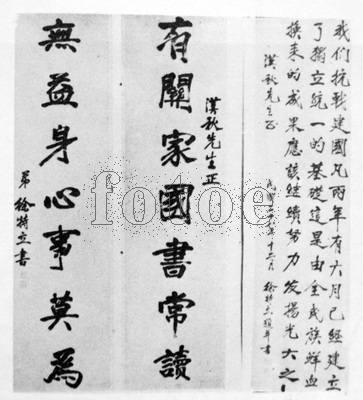 我们抗戰建國凡兩年有六月已經建立
了獨立統一的基礎這是由全民族鮮血
換来的成果應該继續努力发揚光大之
漢秋先生正
民國 年十二月 徐特立 書
漢秋先生正
有關家國書常讀
無益身心事莫為
弟徐特立書
fotoe